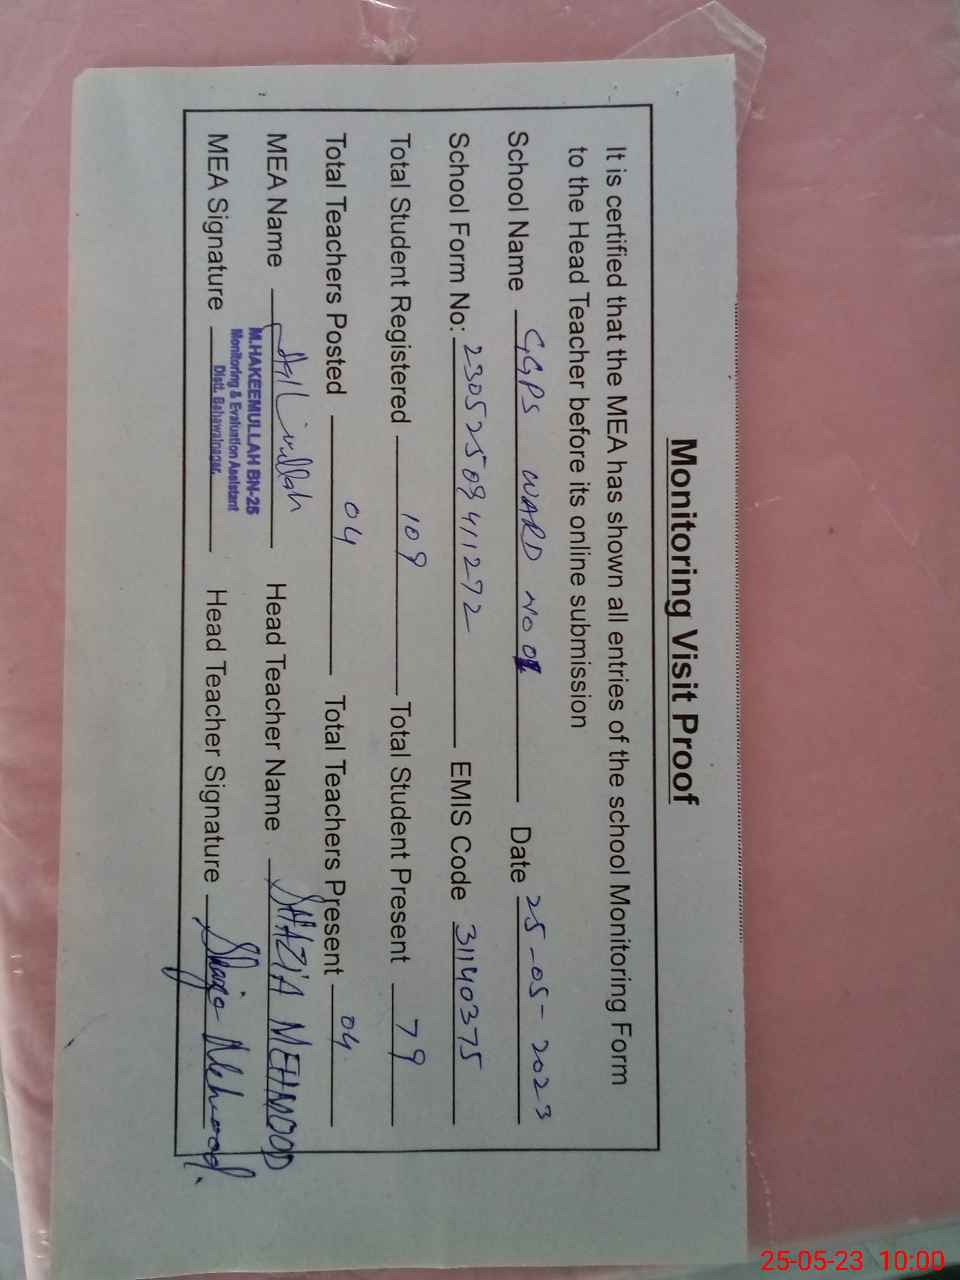 Monitoring Visit Proof
It is certified that the MEA has shown all entries of the school Monitoring Form
to the Head Teacher before its online submission
School Name GGPS WARD NO 01 Date 25-05-2023
School Form No: 23052509411272 EMIS Code 31140375
Total Student Registered 109 Total Student Present 79
Total Teachers Posted 04 Total Teachers Present 04
MEA Name Head Teacher Name SHAZIA MEHMOOD
M.HAKEEMULLAH BN-25
Monitoring & Evaluation Assistant
Distt. Bahawalnagar.
MEA Signature Head Teacher Signature Shazia Mehmood.
25-05-23 10:00